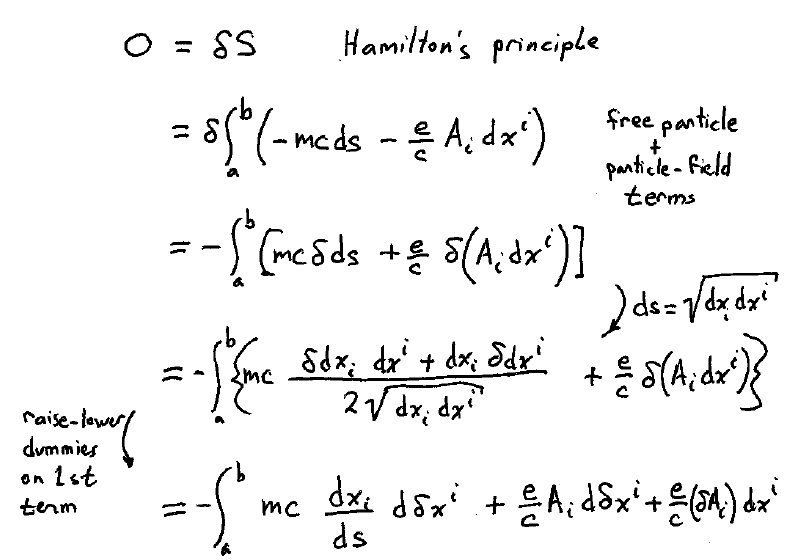 0 = δS Hamilton's principle
= δ∫ₐᵇ(-mcds - e/c Aᵢ dxⁱ) free particle
+
particle-field
terms
= -∫ₐᵇ[mcδds + e/c δ(Aᵢdxⁱ)]
ds = √(dxᵢdxⁱ)
= -∫ₐᵇ{mc (δdxᵢ dxⁱ + dxᵢ δdxⁱ)/(2√(dxᵢdxⁱ)) + e/c δ(Aᵢdxⁱ)}
raise-lower
dummies
on 1st
term
= -∫ₐᵇ mc dxᵢ/ds dδxⁱ + e/c Aᵢdδxⁱ + e/c(δAᵢ)dxⁱ